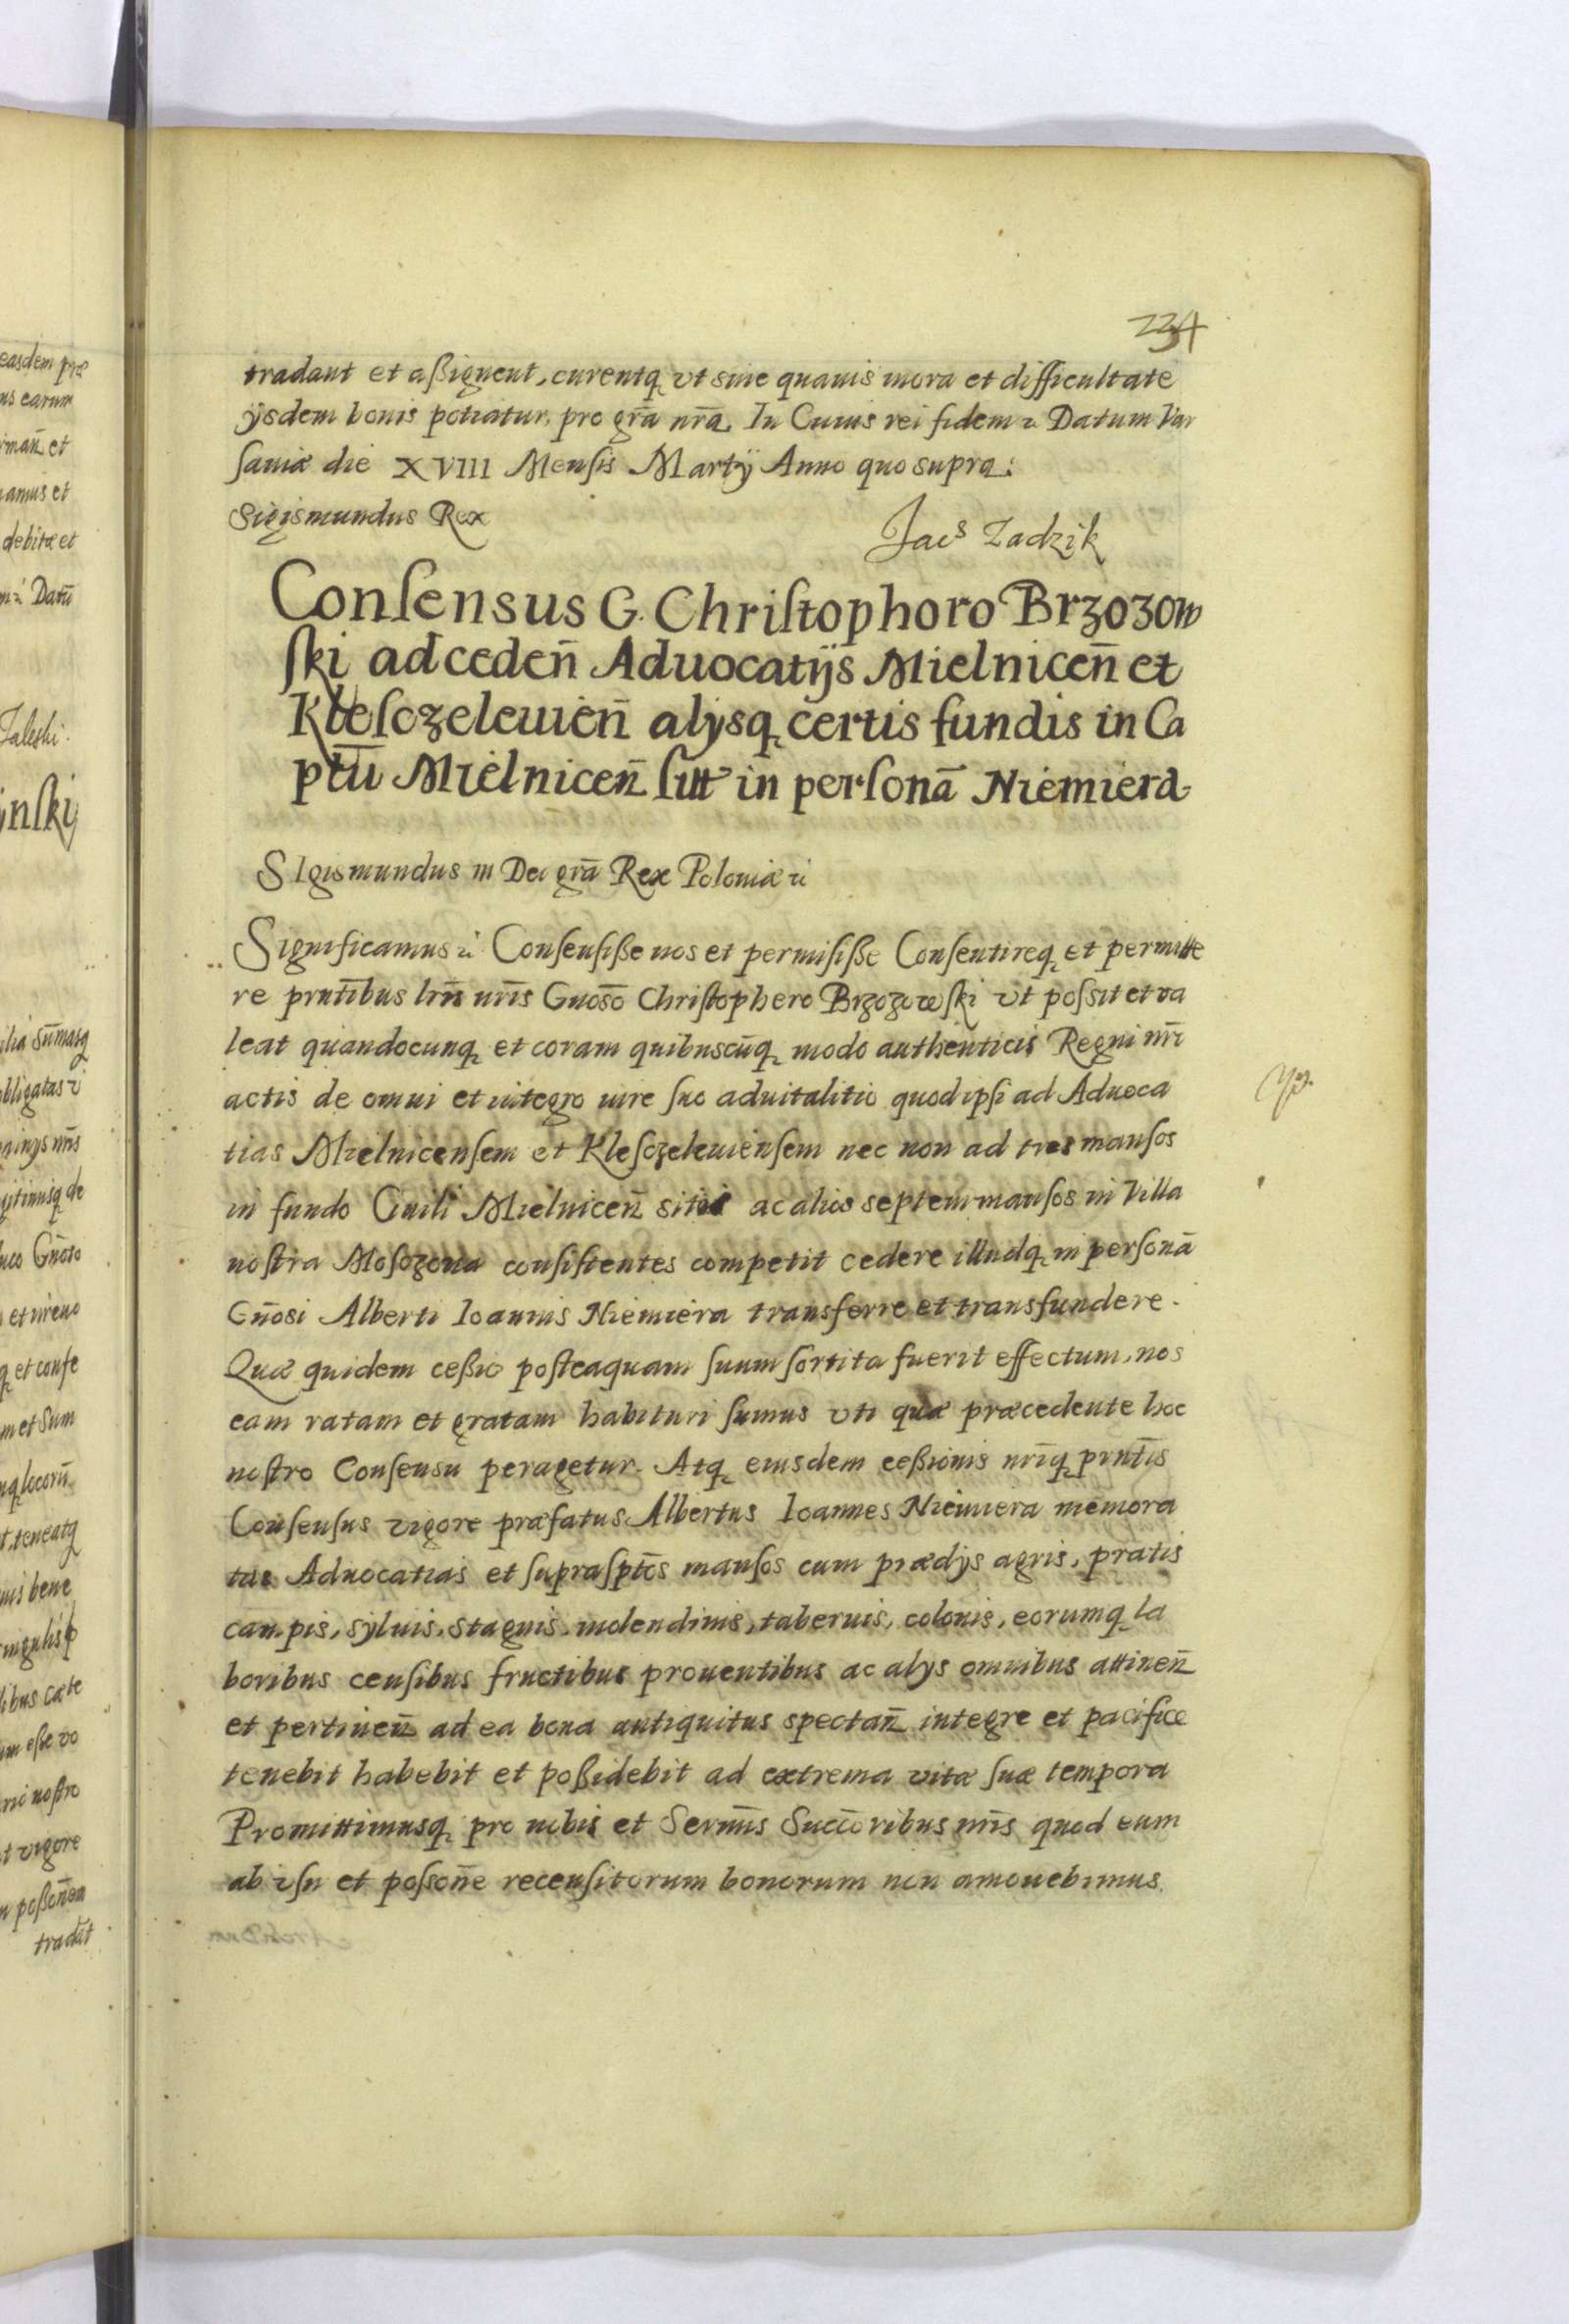 234
tradant et aßignent, curentq̨ vt sine quauis mora et difficultate
ijsdem bonis potiatur, pro gr̃a nr̃a. In Cuius rei fidem &c Datum Var
sauiæ die XVIII Mensis Martij Anno quo supra:
Sigismundus Rex
Jacˢ Zadzik
Consensus G. Christophoro Brzozow
ski ad ceden̄ Aduocatijs Mielnicen̄ et
Klesczeleuien̄ alijsq̨ certis fundis in Ca
ptũ Mielnicen̄ sitt̃ in personã Niemiera
SIgismundus III Dei grã Rex Poloniæ &c
Significamus &c Consensiße nos et permisiße Consentireq̨ et permitte
re pñtibus lr̃is nr̃is Gnoso Christophero Brzozowski vt possit et va
leat quandocunq̨ et coram quibuscũq̨ modo authenticis Regni nr̃i
actis de omni et integro iure suo aduitalitio quod ipsi ad Aduoca
tias Mielnicensem et Klesczeleuiensem nec non ad tres mansos
in fundo Ciuili Mielnicen̄ sitis ac alios septem mansos in Villa
nostra Moszona consistentes competit cedere illudq̨ in personã
Gñosi Alberti Ioannis Niemiera transferre et transfundere.
Quæ quidem ceßio posteaquam suum sortita fuerit effectum, nos
eam ratam et gratam habituri sumus vti quæ præcedente hoc
nostro Consensu peragetur. Atq̨ eiusdem ceßionis nr̃iq̨ pñtis
Consensus vigore præfatus Albertus Ioannes Niemiera memora
tas Aduocatias et suprasptos mansos cum prædijs agris, pratis
campis, syluis, stagnis, molendinis, tabernis, colonis, eorumq̨ la
boribus censibus fructibus prouentibus ac alijs omnibus attinen̄
et pertinen̄ ad ea bona antiquitus spectan̄ integre et pacifice
tenebit habebit et poßidebit ad extrema vitæ suæ tempora
Promittimusq̨ pro nobis et Sermis Succoribus nr̃is quod eum
ab vsu et possone recensitorum bonorum non amouebimus.